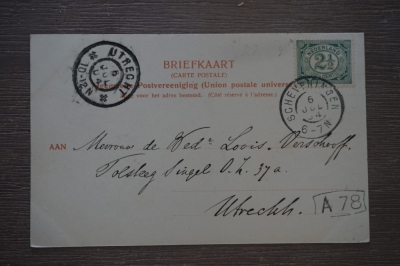 BRIEFKAART
(CARTE POSTALE)
Postvereeniging (Union postale univers
voor het adres bestemd. (Côté réservé à l'adresse.)
NEDERLAND
2½
UTRECHT
6
JUL
04
10-12N
SCHEVENINGEN
6
JUL
04
6-7N
AAN
Mevrouw de Wed. Louis Verschooff
Tolsteeg Singel O.Z. 37a.
Utrecht.
A 78